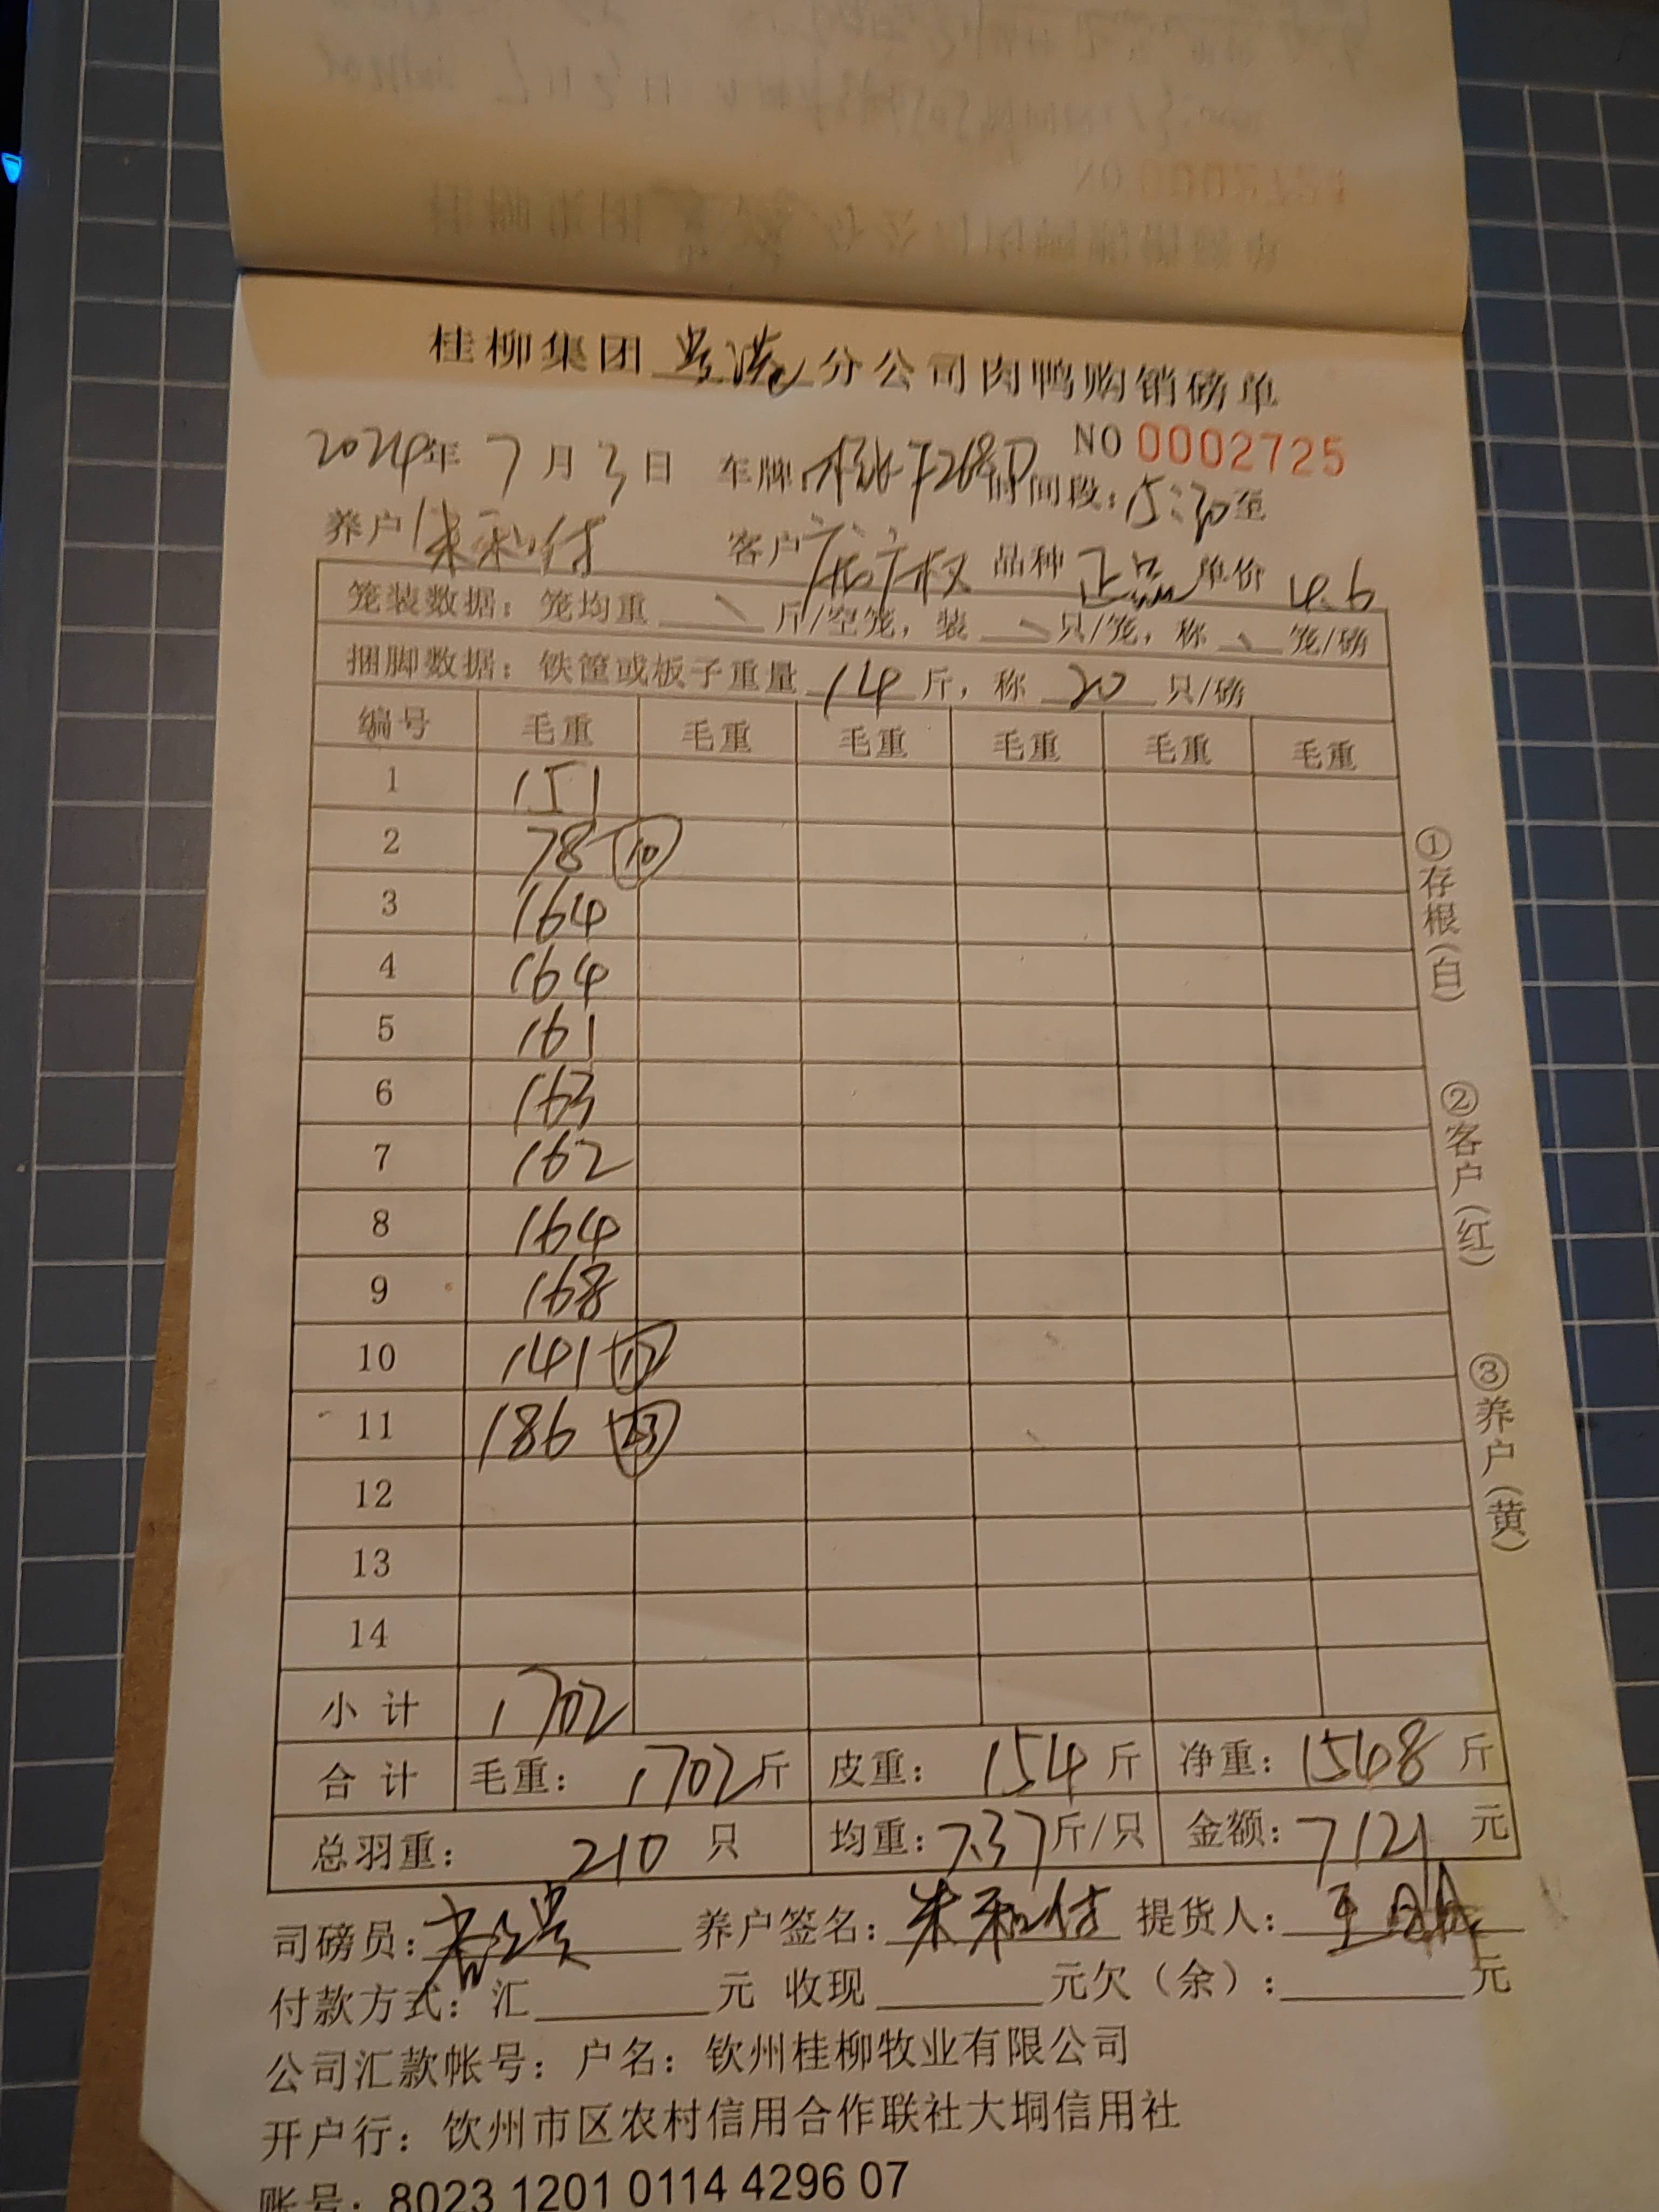 桂柳集团 分公司肉鸭购销磅单
NO 0002725
2024年 7月3日 车牌: 时间段:15:30至
养户 朱和付 客户 品种 正品 单价 4.6
笼装数据：笼均重 \ 斤/空笼，装 \ 只/笼，称 \ 笼/磅
捆脚数据：铁筐或板子重量 14 斤，称 20 只/磅
编号 毛重 毛重 毛重 毛重 毛重 毛重
1 151
2 78 ⑩
3 164
4 164
5 161
6 163
7 162
8 164
9 168
10 141 ⑰
11 186 ㉓
12
13
14
小计 1702
合计 毛重：1702斤 皮重：154斤 净重：1548斤
总羽重：210只 均重：7.37斤/只 金额：7121元
司磅员： 养户签名：朱和付 提货人：
付款方式：汇 元 收现 元欠（余）： 元
公司汇款帐号：户名：钦州桂柳牧业有限公司
开户行：钦州市区农村信用合作联社大垌信用社
账号：8023 1201 0114 4296 07
①存根（白）
②客户（红）
③养户（黄）